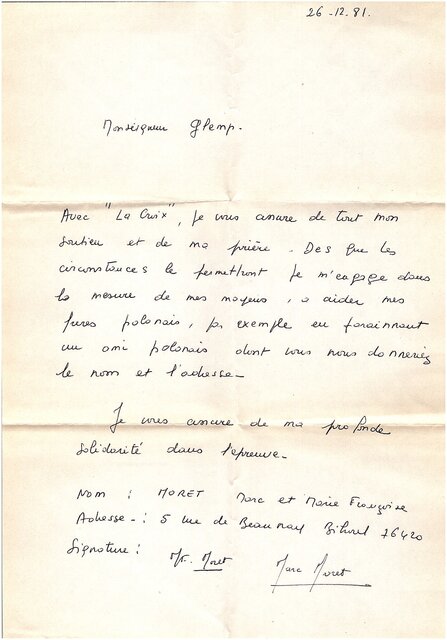 26-12.81.
Monseigneur Glemp.
Avec "La Croix", je vous assure de tout mon
soutien et de ma prière. Des que les
circonstances le permettront je m'engage dans
la mesure de mes moyens, a aider mes
freres polonais, par exemple en parainnant
un ami polonais dont vous nous donneriez
le nom et l'adresse-
Je vous assure de ma profonde
solidarité dans l'épreuve-
Nom : MORET Marc et Marie Françoise
Adresse-: 5 rue de Beaunay Bihorel 76420
Signature : MF. Moret Marc Moret